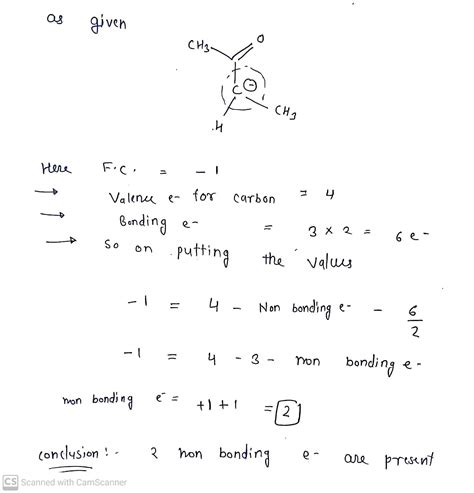 as given
CH3
O
C ⊖
CH3
H
Here F.C. = -1
→ Valence e- for carbon = 4
→ Bonding e- = 3 x 2 = 6 e-
→ so on putting the values
-1 = 4 - Non bonding e- - 6/2
-1 = 4 - 3 - non bonding e-
non bonding e- = +1+1 = 2
conclusion :- 2 non bonding e- are present
CS Scanned with CamScanner